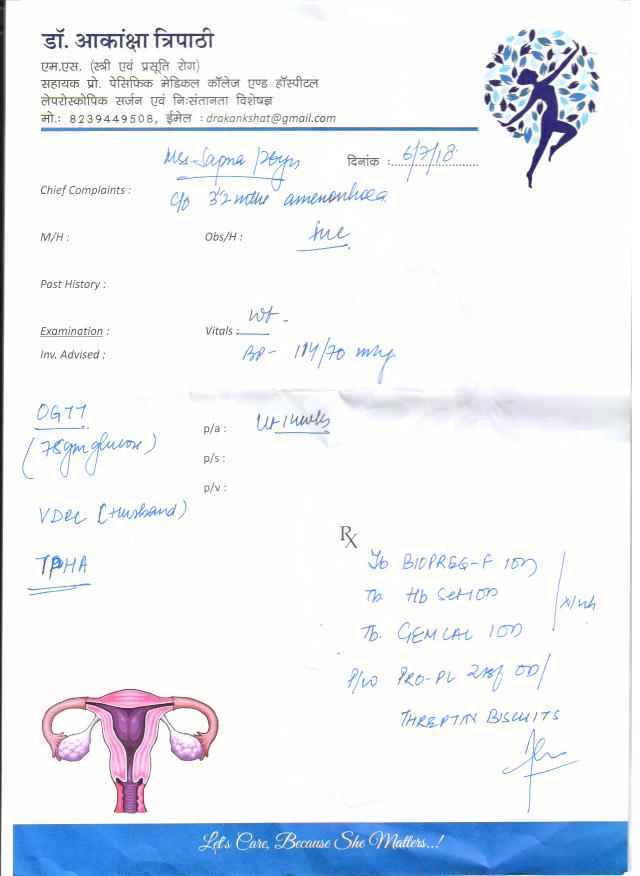 डॉ. आकांक्षा त्रिपाठी
एम.एस. (स्त्री एवं प्रसूति रोग)
सहायक प्रो. पेसिफिक मेडिकल कॉलेज एण्ड हॉस्पीटल
लेपरोस्कोपिक सर्जन एवं निःसंतानता विशेषज्ञ
मो.: 8239449508, ईमेल : drakankshat@gmail.com
Mrs. Sapna
दिनांक : 6/7/18
Chief Complaints : c/o 3½ mths amenorrhoea
M/H :
Obs/H :
Past History :
Examination :
Vitals : Wt -
Inv. Advised :
BP - 114/70 mmHg
OGTT
(75gm glucose)
p/a :
p/s :
p/v :
VDRL (Husband)
TPHA
Rx
Tb BIOPREG-F 1OD
Tb. Hb 1OD
Tb. GEMCAL 1OD
PRO-PL 2tsf OD/
THREPTIN BISCUITS
Let's Care, Because She Matters...!